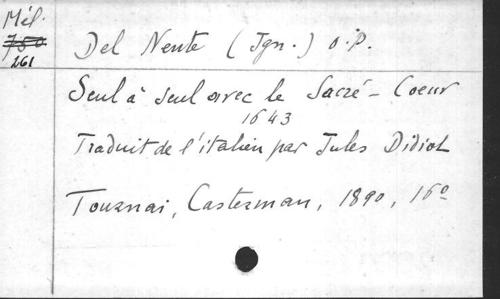 Mél.
750
261
Del Nente (Ign.) O.P.
Seul à seul avec le Sacré-Coeur
1643
Traduit de l'italien par Jules Didiot
Tournai, Casterman, 1890, 16°